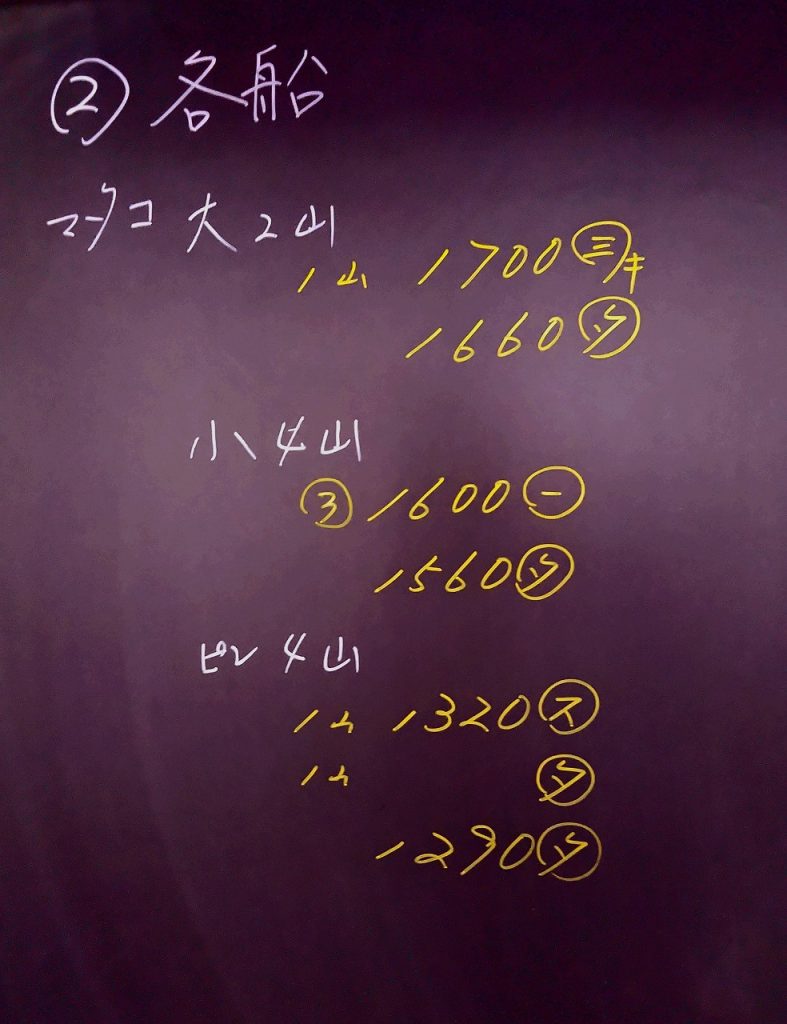 ② 各船
マダコ 大 2山
1山 1700 ㊂キ
1660 ㋟
小 4山
③ 1600 ㊀
1560 ㋟
ピン 4山
1山 1320 ㋜
1山 ㋟
1290 ㋟